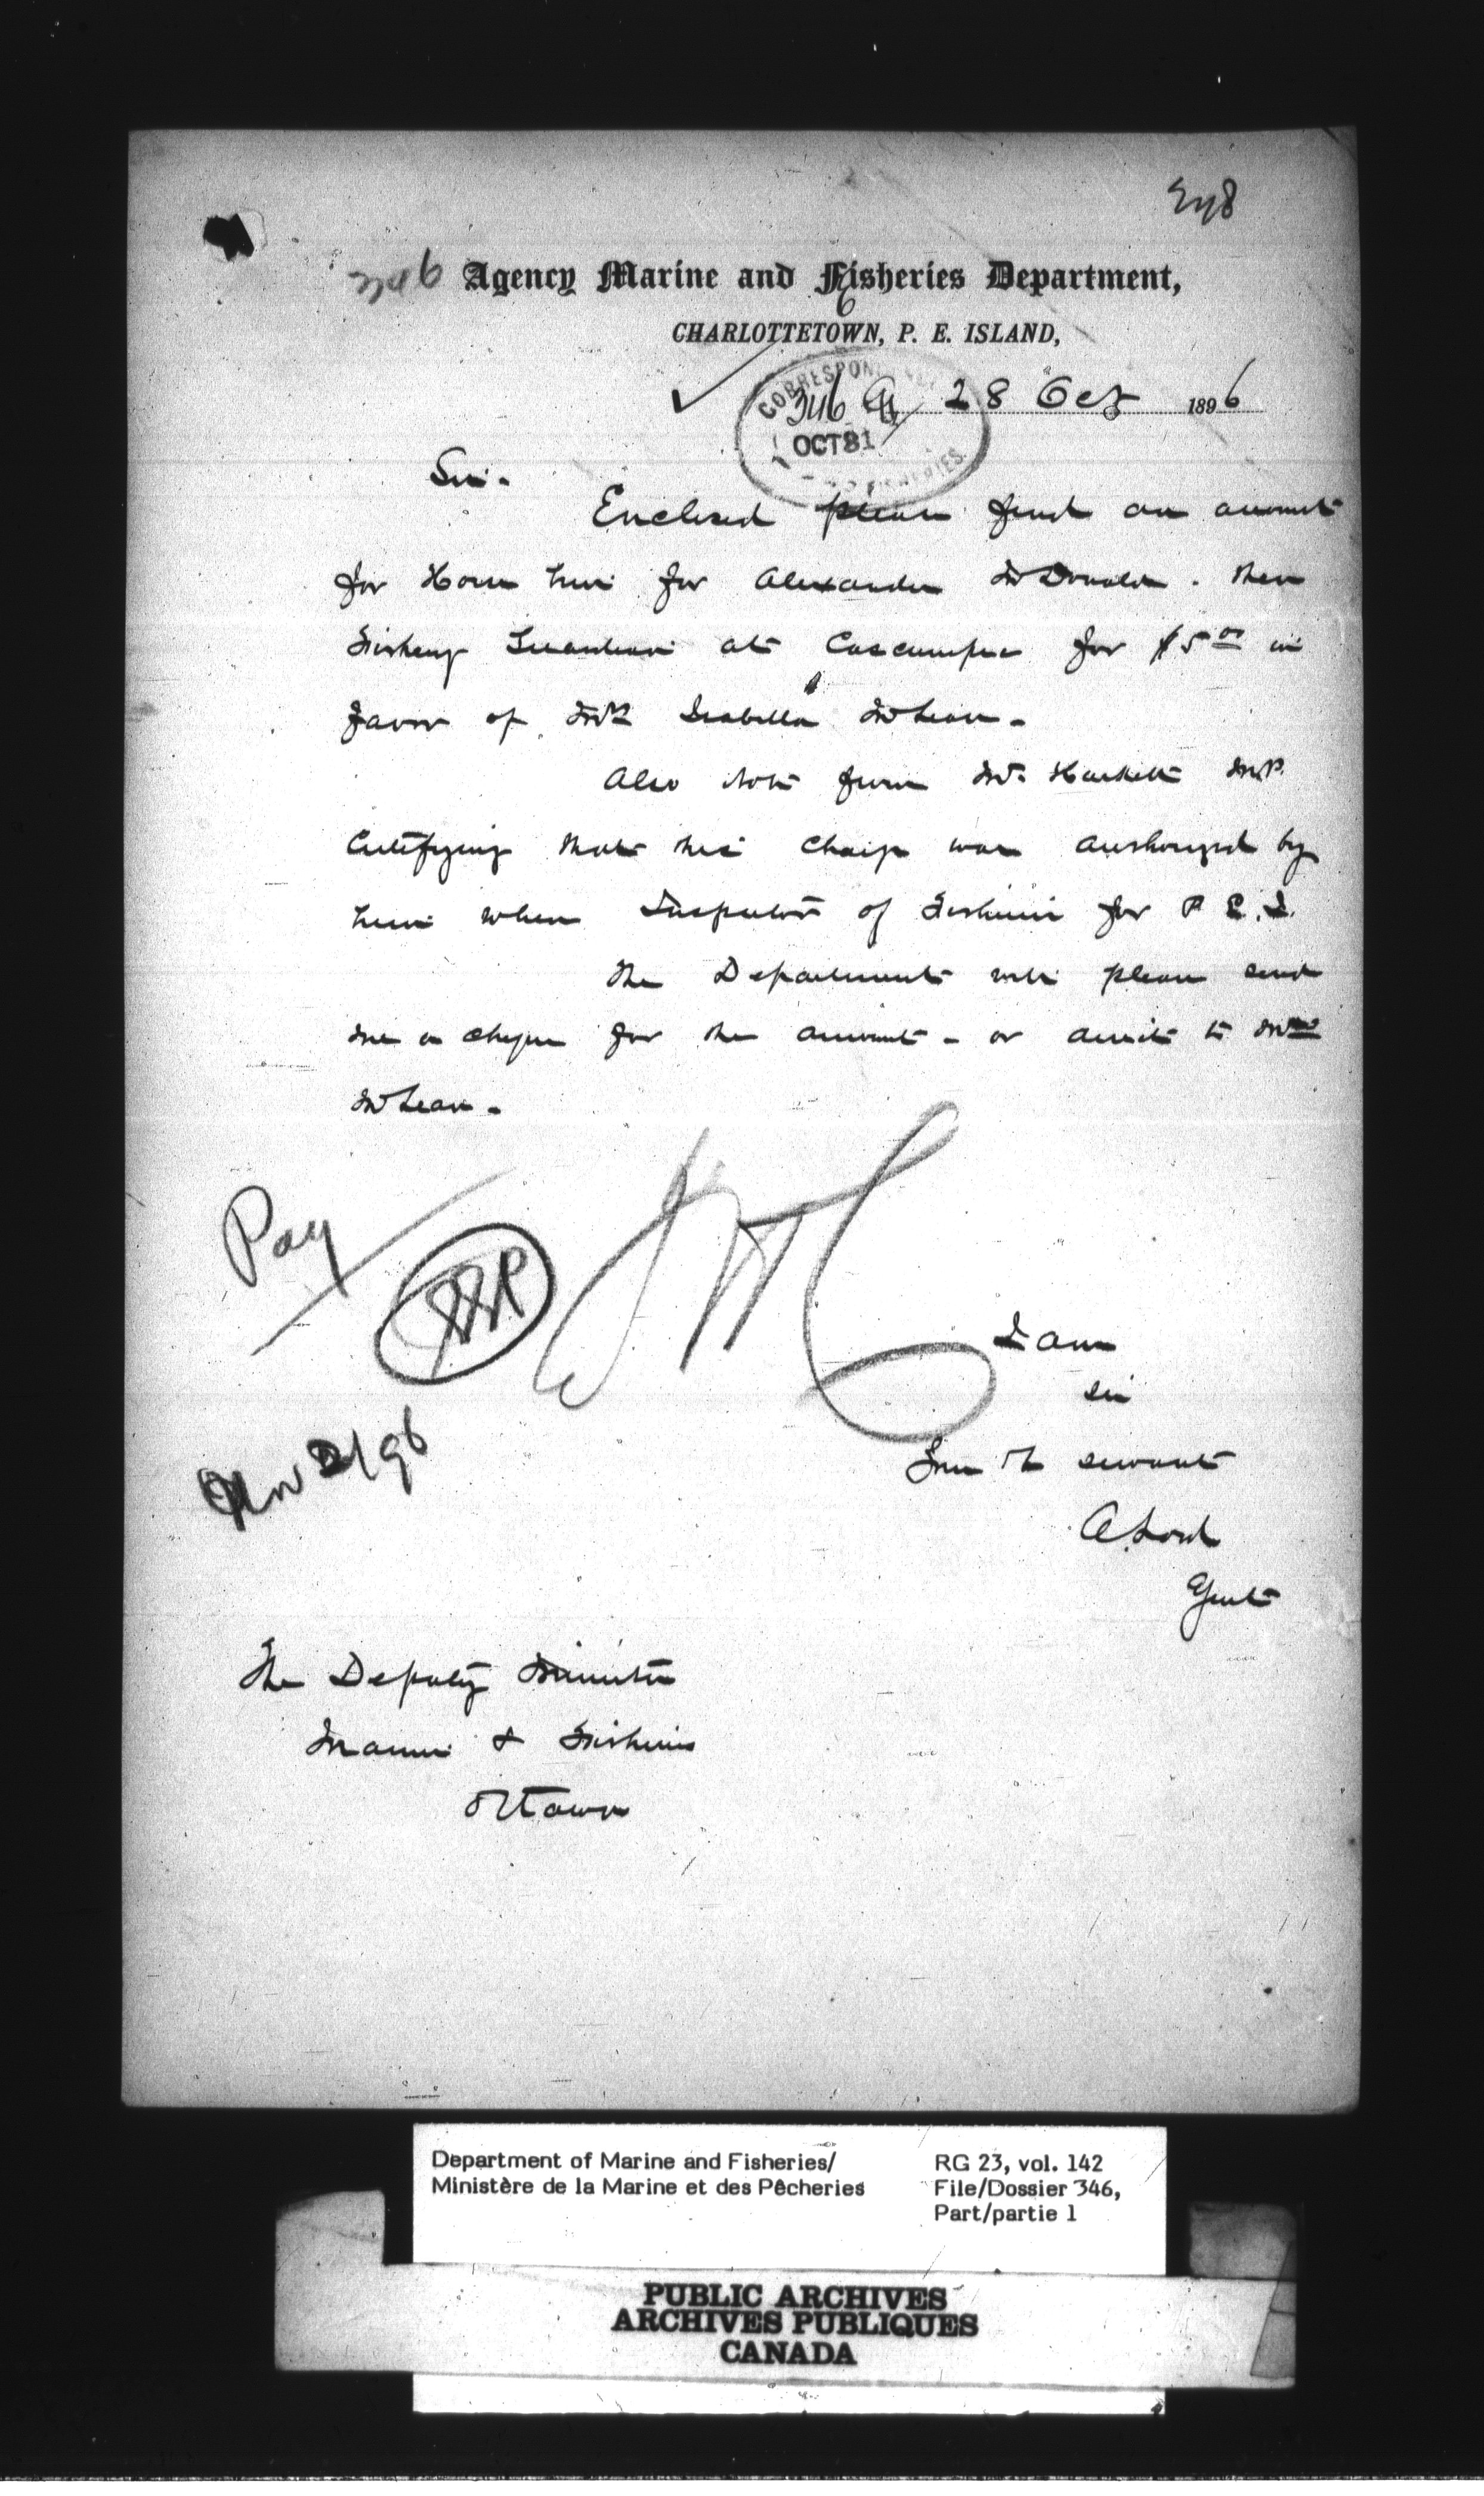 Agency Marine and Fisheries Department,
CHARLOTTETOWN, P. E. ISLAND,
28 Oct 1896
346
OCT 31
Sir.
Enclosed please find an account
for Horse hire for Alexander McDonald. then
Fishery Guardian at Cascumpec for $5 00 in
favor of Mrs Isabella McLean.
Also note from Mr. Hackett M.P.
Certifying that this charge was authorized by
him when Inspector of Fisheries for P. E. I.
The Department will please send
me a cheque for the amount - or remit to Mrs
McLean.
Pay
Nov 2/96
I am
Sir
Your Ob servant
A. Lord
Agent
The Deputy Minister
Marine & Fisheries
Ottawa
Department of Marine and Fisheries/
Ministère de la Marine et des Pêcheries
RG 23, vol. 142
File/Dossier 346,
Part/partie 1
PUBLIC ARCHIVES
ARCHIVES PUBLIQUES
CANADA